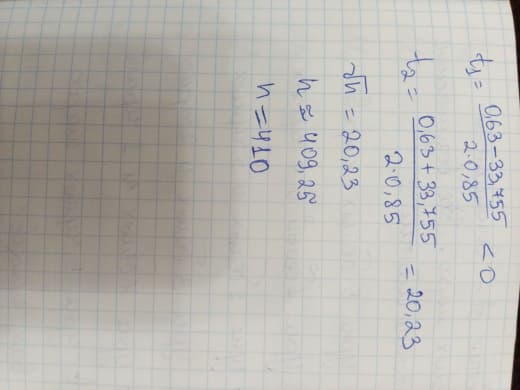 t₁ = (0,63 - 33,755)/(2·0,85) < 0
t₂ = (0,63 + 33,755)/(2·0,85) = 20,23
√n = 20,23
n ≈ 409,25
n = 410